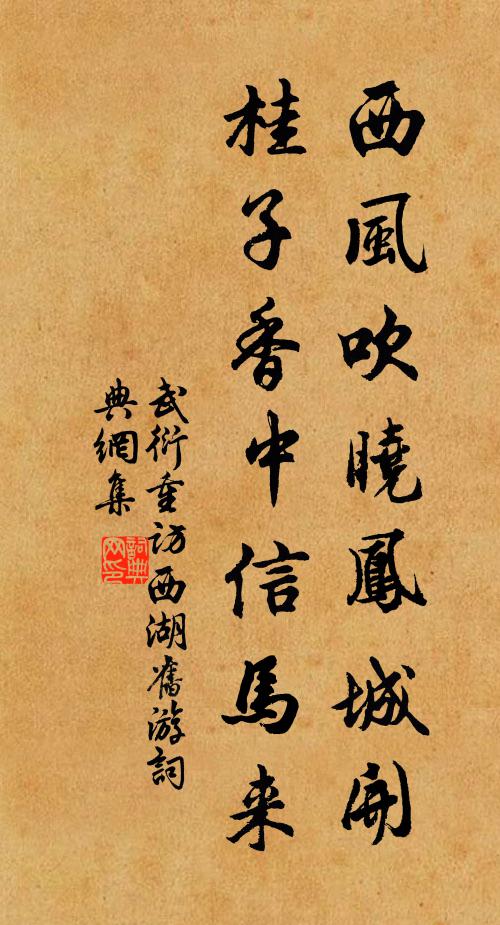 西風吹曉鳳城開
桂子香中信馬来
武衍重访西湖舊游詞
典網集
詞典
网印